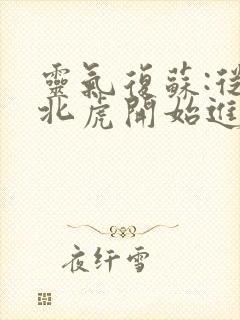 靈氣復蘇:從
北虎開始進
夜纤雪